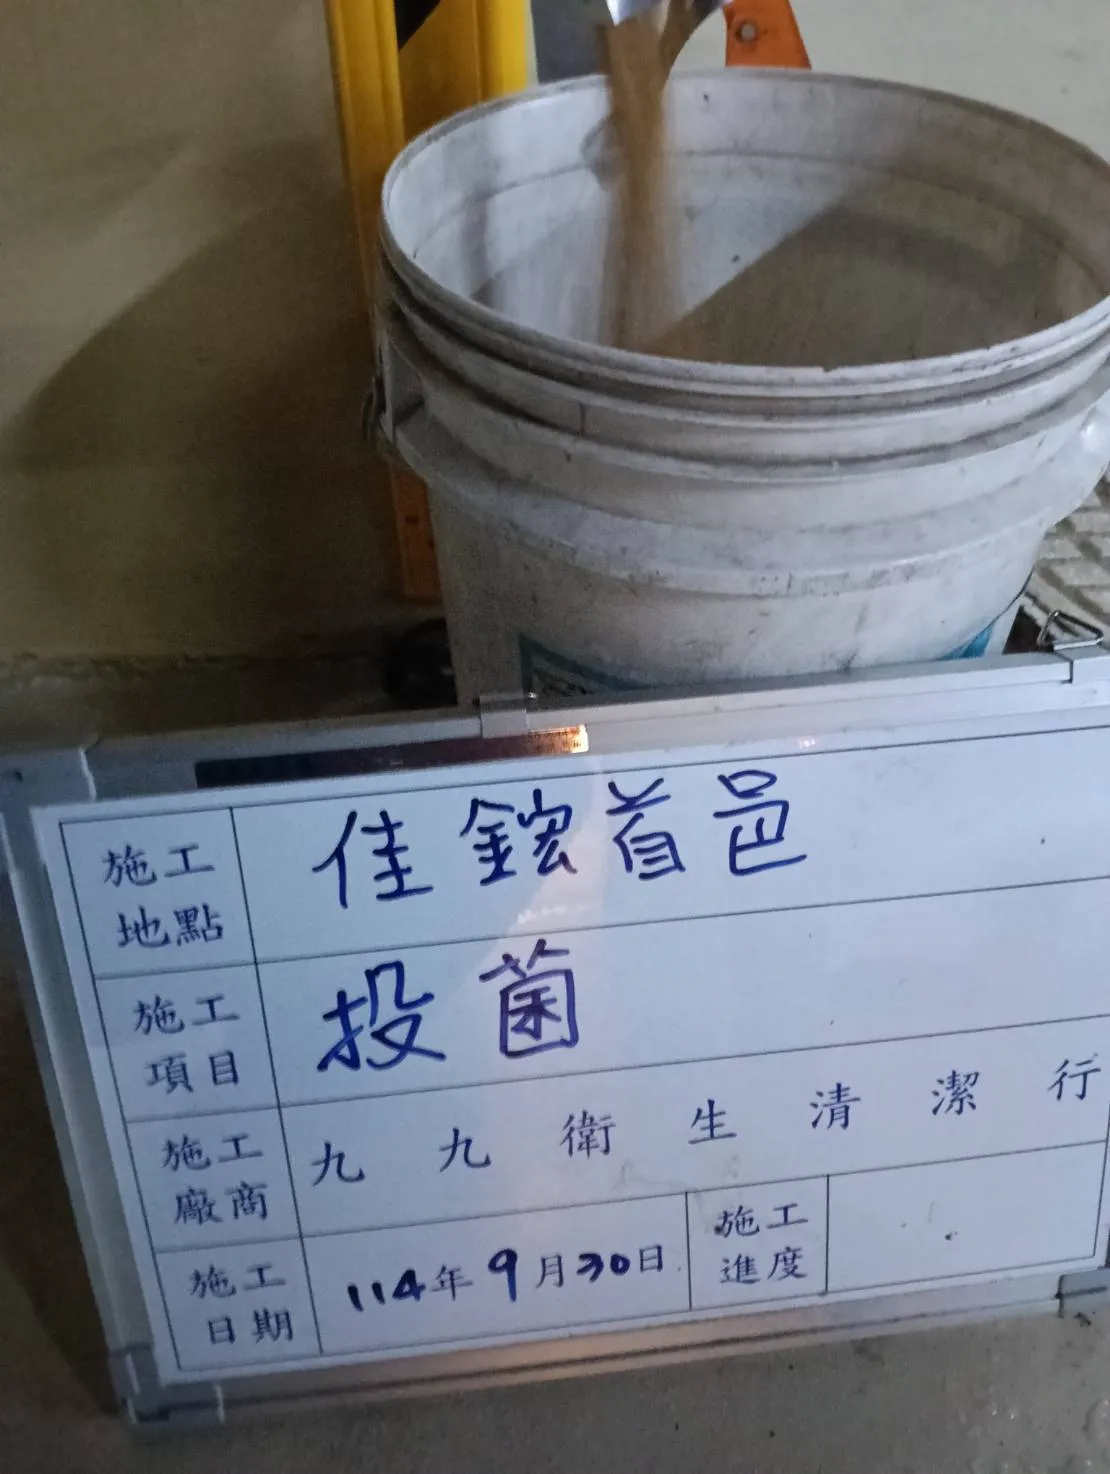 施工地點 佳鋐首邑
施工項目 投菌
施工廠商 九九衛生清潔行
施工日期 114年9月30日 施工進度